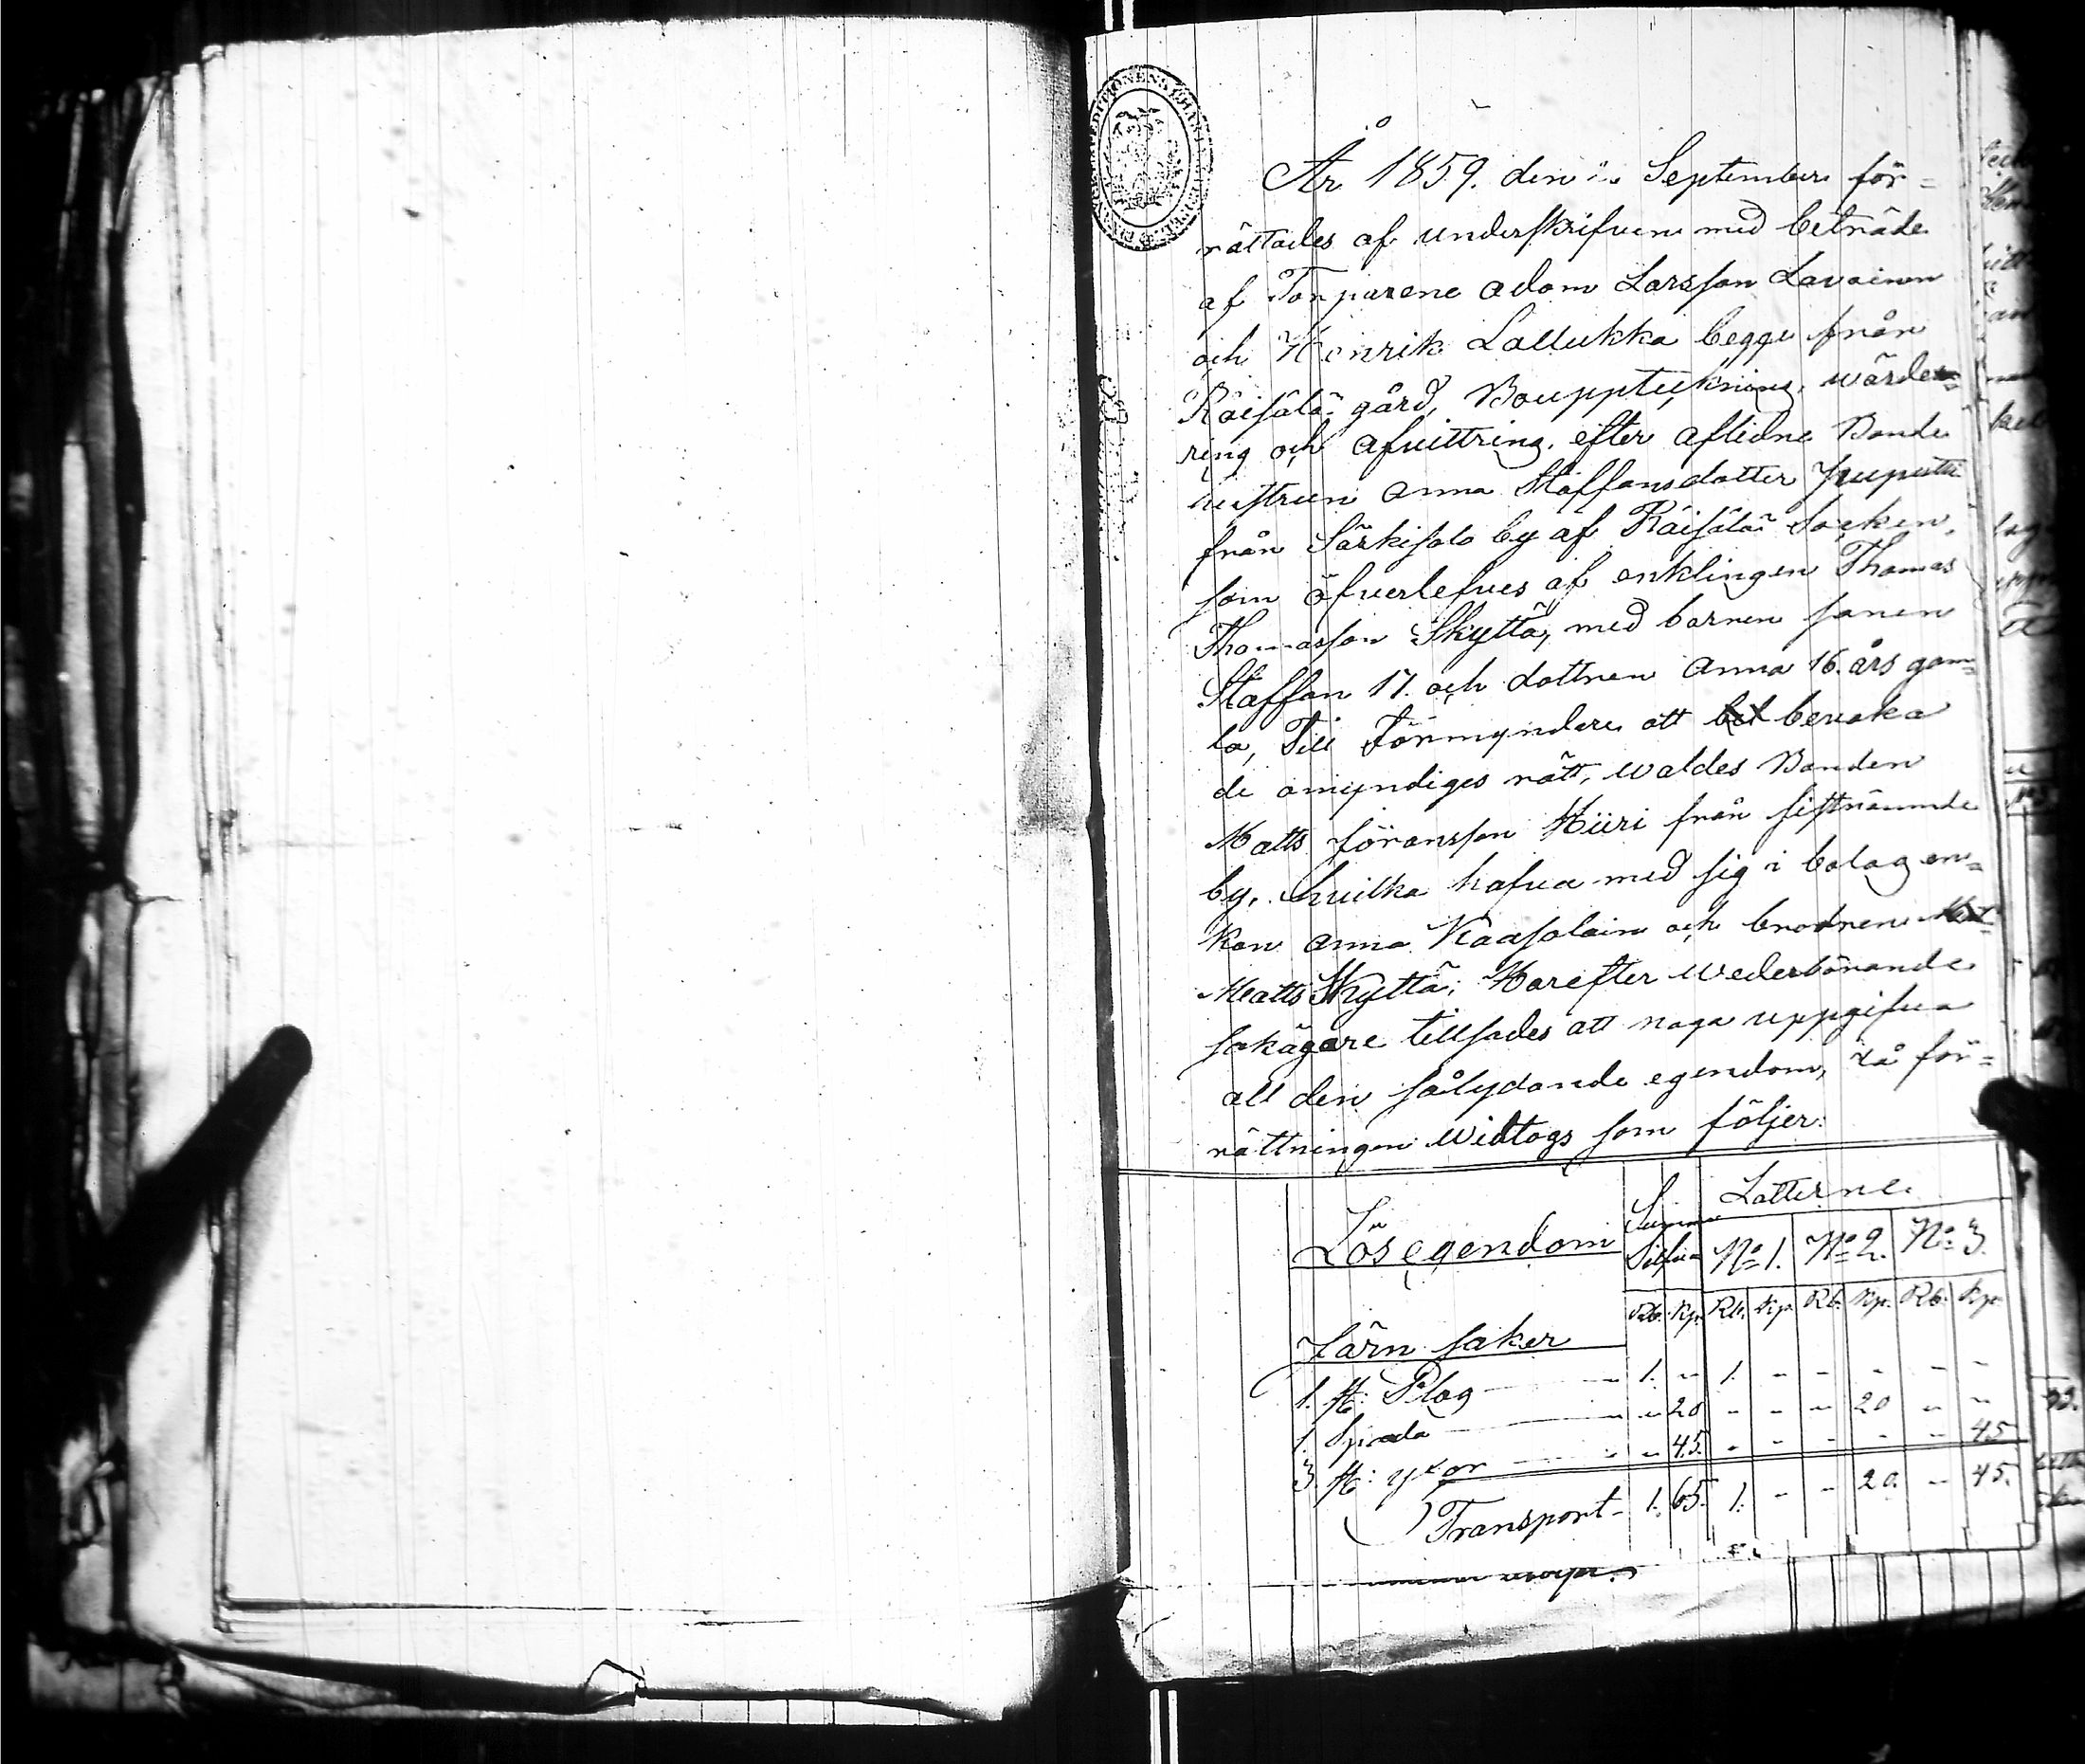 År 1859. den September för=
rättades af underskrifven med beträde
af Torparene Adam Larsson Lavainen
och Henrik Lallukka begge från
Räisälä gård, Bouppteckning, wärde=
ring och afvittring, efter aflidne Bonde
hustrun Anna Staffansdotter
från Särkisalo by af Räisälä Socken,
som öfverlefves af enklingen Thomas
Thomasson Skyttä, med barnen sonen
Staffan 17. och dottren Anna 16. års gam=
la, Till Förmyndare att bevaka
de omyndiges rätt, waldes Bonden
Matts Göransson Hiiri från sistnämnde
by, hvilka hafva med sig i bolag en=
kan Anna Kaasolain och brodren
Matts Skyttä; Harefter wederbörande
sakägare tillsades att noga uppgifva
all den sålydande egendom, då för=
rättningen widtogs som följer:
Lös egendom Summa Silfver Lotterne
No 1. No 2. No 3.
Rb. Kp. Rb. Kp. Rb. Kp. Rb. Kp.
Järn saker
1. st: Plog 1. - 1. - - - - -
1. Spada - 20 - - - 20 - -
3. st: yxor - 45. - - - - - 45
Transport - 1. 65. 1. - - 20. - 45.